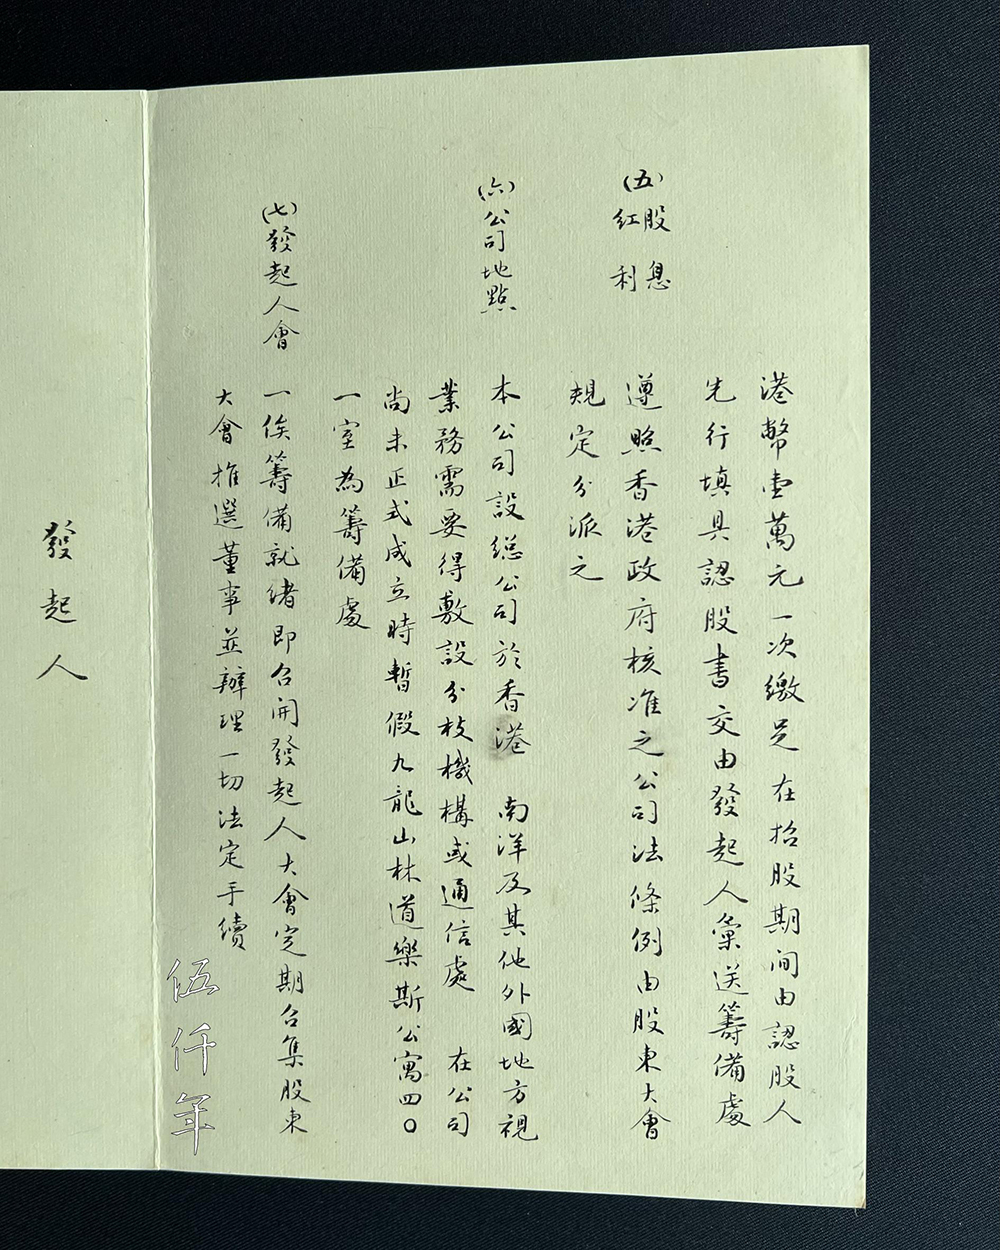 港幣壹萬元一次繳足在招股期间由認股人
先行填具認股書交由發起人彙送籌備處
(五)股息
紅利
遵照香港政府核准之公司法條例由股東大會
規定分派之
(六)公司地點
本公司設總公司於香港 南洋及其他外國地方視
業務需要得敷設分枝機構或通信處 在公司
尚未正式成立時暫假九龍山林道樂斯公寓四〇
一室為籌備處
(七)發起人會
一俟籌備就绪即召開發起人大會定期召集股東
大會推選董事並辦理一切法定手續
發起人
伍仟年